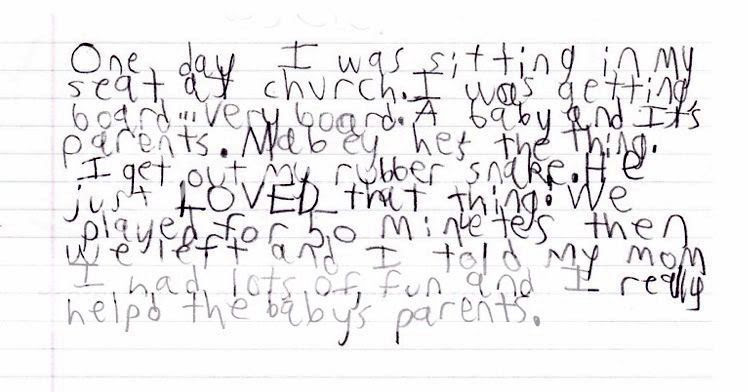 One day I was sitting in my
seat at church. I was getting
board... very board. A baby and It's
parents. Mabey he's the thing.
I get out my rubber snake. He
just LOVED that thing! We
played for 50 minetes then
we left and I told my mom
I had lots of fun and I really
helpd the baby's parents.